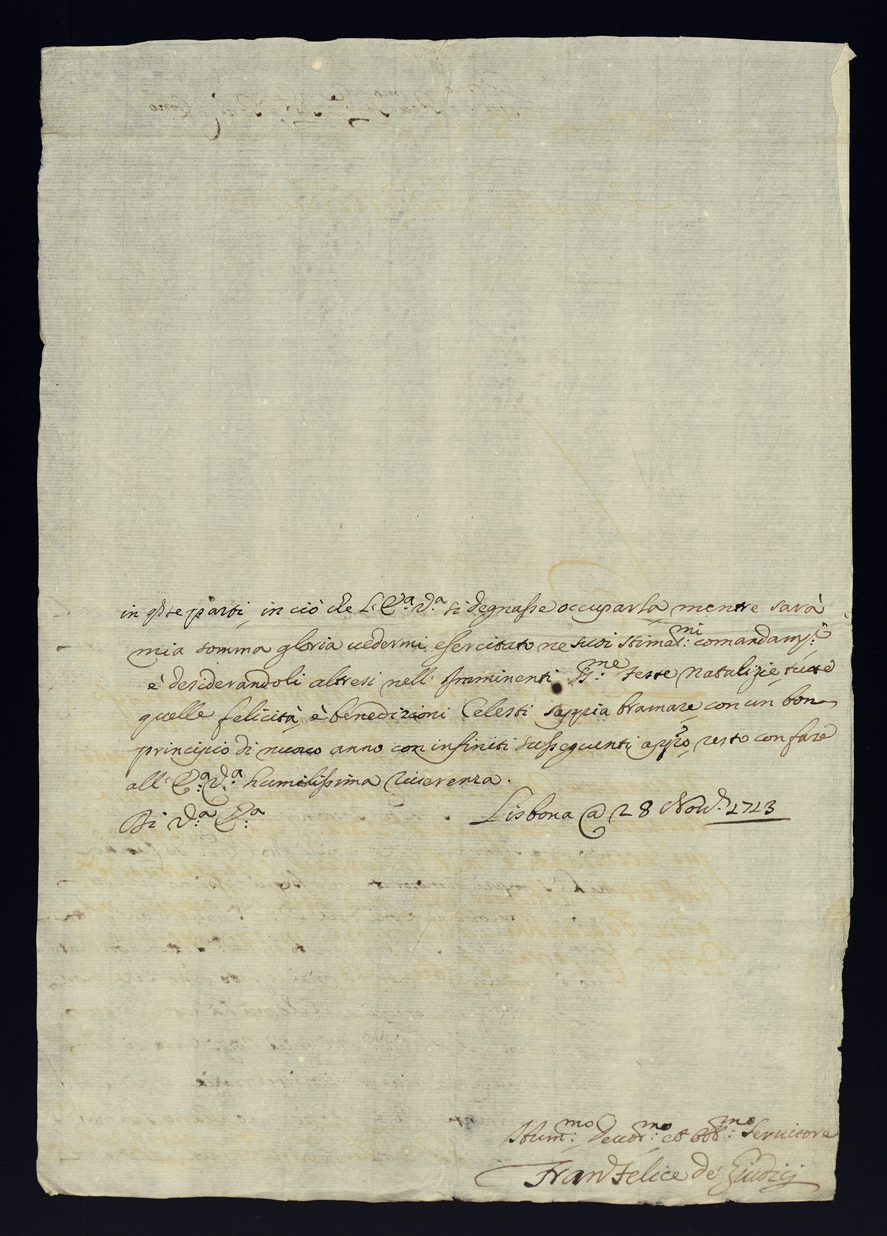 in q̃ste parti, in ciò che L'Ecc.ª V.ª si degnasse occuparla mentre sarà
mia somma gloria vedermi esercitato ne suoi stimat.mi comandam.ti
è desiderandoli altresi nell' imminenti S.me feste natalizie tutte
quelle felicità è benedizioni Celesti sappia bramare con un bon
principio di nuovo anno con infiniti susseguenti app.o resto con fare
all' E.ª V.ª humilissima riverenza.
Di V.ª E.ª Lisbona @ 28 Nov.e 1713
Hum.mo Devot.mo et obb.mo Servitore
Fran Felice de Giudici